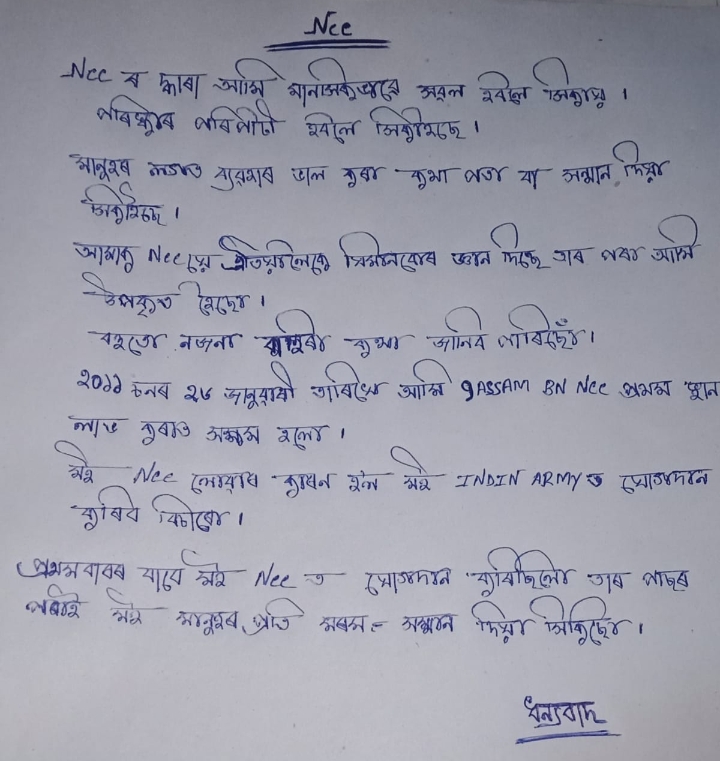 Ncc
Ncc ৰ দ্বাৰা আমি মানসিকভাৱে সৱল হবলৈ শিকায় ।
পৰিষ্কাৰ পৰিপাটী হবলৈ শিকাইছে ।
মানুহৰ লগত ব্যৱহাৰ ভাল কৰা কথা পতা বা সন্মান দিয়া
শিকাইছে ।
আমাক Ncc য়ে প্ৰতিয়ালৈকে যিমানবোৰ জ্ঞান দিছে তাৰ পৰা আমি
উপকৃত হৈছো ।
বহুতো নজনা কথা জানিব পাৰিছোঁ ।
২০১১ চনৰ ২৬ জানুৱাৰী তাৰিখে আমি 9ASSAM BN Ncc প্ৰথম স্থান
লাভ কৰাত সক্ষম হলো ।
মই Ncc লোৱাৰ কাৰন হল মই INDIN ARMY ত যোগদান
কৰিব বিচাৰো ।
প্ৰথমবাৰৰ বাবে মই Ncc ত যোগদান কৰিছিলো তাৰ পাছৰ
পৰাই মই মানুহৰ প্ৰতি মৰম = সন্মান দিয়া শিকিছো ।
ধন্যবাদ